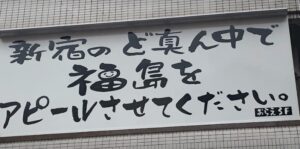 新宿のど真ん中で
福島を
アピールさせてください。